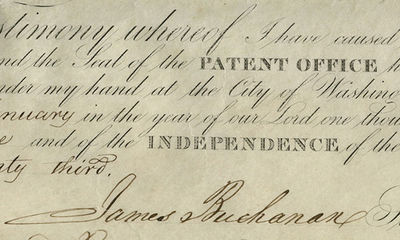 stimony whereof I have caused
nd the Seal of the PATENT OFFICE
der my hand at the City of Washing
anuary in the year of our Lord one thou
and of the INDEPENDENCE of the
ty third.
James Buchanan